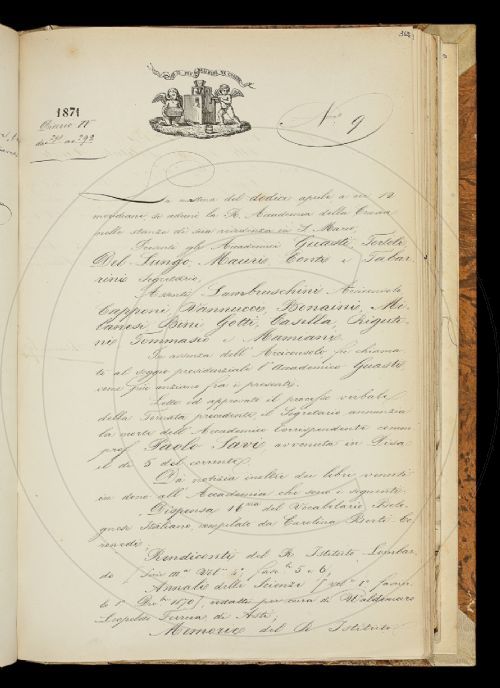 162
1871
N.° 9
La mattina del dodici aprile a ore 12
meridiane si adunò la R. Accademia della Crusca
nelle stanze di sua residenza in S. Marco,
Presenti gli Accademici Guasti, Tortoli
Del Lungo, Mauri, Conti e Tabar-
rini Segretario,
Assenti Lambruschini Arciconsolo
Capponi Vannucci, Bonaini, Mi-
lanesi Bini Gotti, Casella, Riguti-
ni Tommaseo e Mamiani.
In assenza dell'Arciconsolo fu chiama-
to al seggio presidenziale l'Accademico Guasti
come più anziano fra i presenti.
Letto ed approvato il processo verbale
della Tornata precedente, il Segretario annunzia
la morte dell'Accademico Corrispondente comm
prof. Paolo Savi avvenuta in Pisa
il dì 5 del corrente.
Dà notizia inoltre dei libri venuti
in dono all'Accademia che sono i seguenti.
Dispensa 16ma del Vocabolario Bolo-
gnese Italiano, compilato da Carolina Coronedi Berti
Rendiconti del R. Istituto Lombar-
do
Annali delle Scienze
Leopoldo
Memorie del R. Istituto